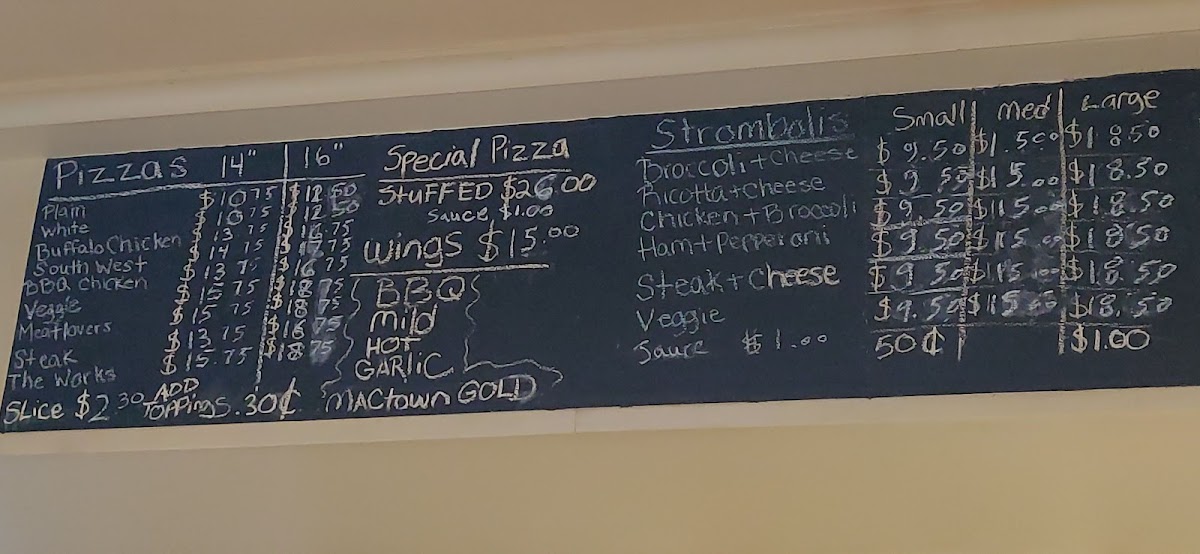 Pizzas 14" 16"
Plain $10.75 $12.50
White $10.75 $12.50
Buffalo Chicken $13.75 $16.75
South West $14.75 $17.75
BBQ Chicken $13.75 $16.75
Veggie $15.75 $18.75
Meatlovers $15.75 $18.75
Steak $13.75 $16.75
The Works $15.75 $18.75
SLice $2.30 ADD TOPPINGS .30¢
Special Pizza
STUFFED $26.00
Sauce $1.00
Wings $15.00
BBQ
Mild
HOT
GARLIC
MACtown GOLD
Strombolis Small Med Large
Broccoli + Cheese $9.50 $15.00 $18.50
Ricotta + Cheese $9.50 $15.00 $18.50
Chicken + Broccoli $9.50 $15.00 $18.50
Ham + Pepperoni $9.50 $15.00 $18.50
Steak + Cheese $9.50 $15.00 $18.50
Veggie $9.50 $15.00 $18.50
Sauce $1.00 50¢ $1.00